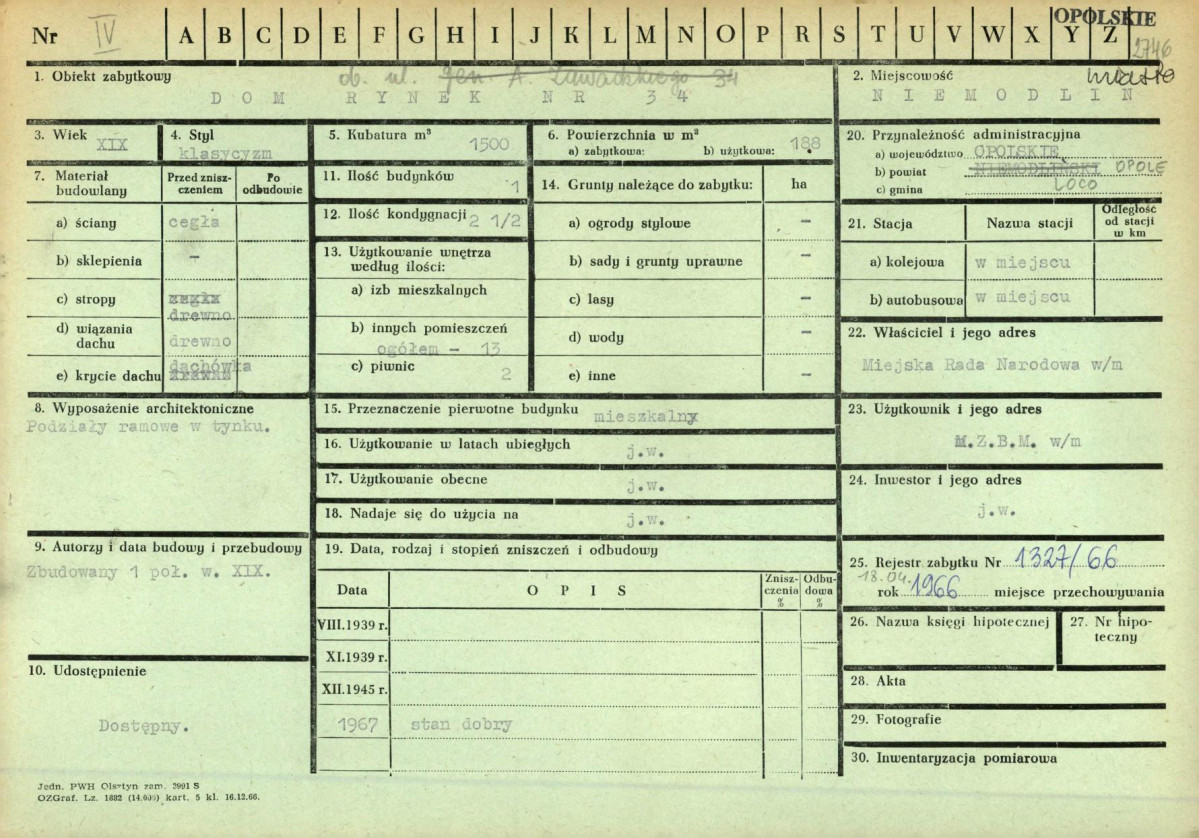 OPOLSKIE
Nr IV A B C D E F G H I J K L M N O P R S T U V W X Y Z
2746
1. Obiekt zabytkowy
ob. ul. gen. A. Zawadzkiego 34
DOM RYNEK NR 34
2. Miejscowość
miasto
NIEMODLIN
3. Wiek
XIX
4. Styl
klasycyzm
5. Kubatura m³
1500
6. Powierzchnia w m²
a) zabytkowa: b) użytkowa: 188
7. Materiał budowlany
Przed zniszczeniem
Po odbudowie
a) ściany cegła
b) sklepienia –
c) stropy
drewno
d) wiązania dachu drewno
e) krycie dachu dachówka
8. Wyposażenie architektoniczne
Podziały ramowe w tynku.
9. Autorzy i data budowy i przebudowy
Zbudowany 1 poł. w. XIX.
10. Udostępnienie
Dostępny.
11. Ilość budynków
1
12. Ilość kondygnacji 2 1/2
13. Użytkowanie wnętrza
według ilości:
a) izb mieszkalnych
b) innych pomieszczeń
ogółem – 13
c) piwnic 2
14. Grunty należące do zabytku: ha
a) ogrody stylowe –
b) sady i grunty uprawne –
c) lasy –
d) wody –
e) inne –
15. Przeznaczenie pierwotne budynku mieszkalny
16. Użytkowanie w latach ubiegłych j.w.
17. Użytkowanie obecne j.w.
18. Nadaje się do użycia na j.w.
19. Data, rodzaj i stopień zniszczeń i odbudowy
Data OPIS Zniszczenia % Odbudowa %
VIII.1939 r.
XI.1939 r.
XII.1945 r.
1967 stan dobry
20. Przynależność administracyjna
a) województwo OPOLSKIE
b) powiat NIEMODLIŃSKI OPOLE
c) gmina LOCO
21. Stacja Nazwa stacji Odległość od stacji w km
a) kolejowa w miejscu
b) autobusowa w miejscu
22. Właściciel i jego adres
Miejska Rada Narodowa w/m
23. Użytkownik i jego adres
M.Z.B.M. w/m
24. Inwestor i jego adres
j.w.
25. Rejestr zabytku Nr 1327/66
18.04.
rok 1966 miejsce przechowywania
26. Nazwa księgi hipotecznej
27. Nr hipoteczny
28. Akta
29. Fotografie
30. Inwentaryzacja pomiarowa
Jedn. PWH Olsztyn zam. 3991 S
OZGraf. Lz. 1882 (14.000) kart. 5 kl. 16.12.66.